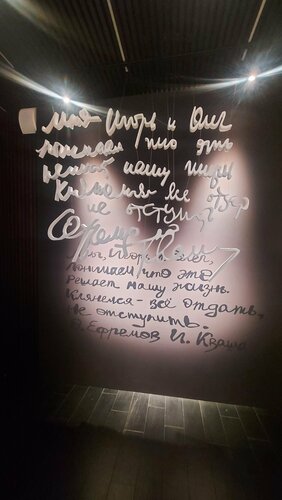 Мы Игорь и Олег
понимаем что это
решает нашу жизнь
Клянемся все отдать
не отступить
Мы, Игорь и Олег,
понимаем что это
решает нашу жизнь.
Клянемся - всё отдать,
не отступить.
О. Ефремов И. Кваша